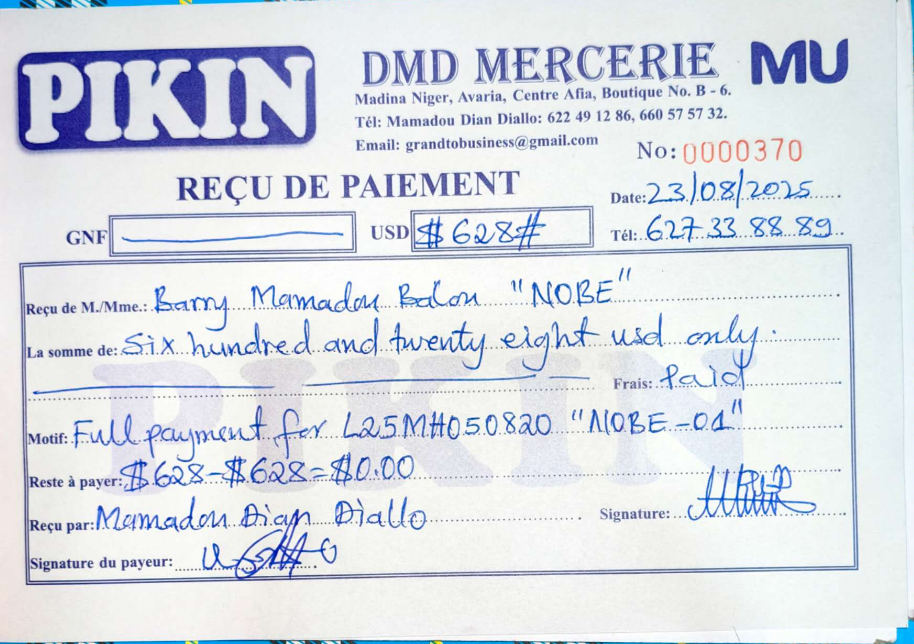 PIKIN
DMD MERCERIE MU
Madina Niger, Avaria, Centre Afia, Boutique No. B - 6.
Tél: Mamadou Dian Diallo: 622 49 12 86, 660 57 57 32.
Email: grandtobusiness@gmail.com
No: 0000370
REÇU DE PAIEMENT
Date: 23/08/2025
GNF USD $628#
Tél: 627 33 88 89
Reçu de M./Mme.: Barry Mamadou Balou "NOBE"
La somme de: Six hundred and twenty eight usd only.
Frais: Paid
Motif: Full payment for L25MH050820 "NOBE-01"
Reste à payer: $628-$628=$0.00
Reçu par: Mamadou Dian Diallo Signature:
Signature du payeur:
PIKIN